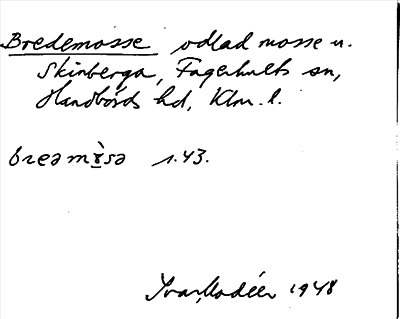 Bredemosse odlad mosse n.
Skinberga, Fagerhults sn,
Handbörds hd, Klm. l.
breəmɤ̀sə s. 43.
Ivar Modéer 1948